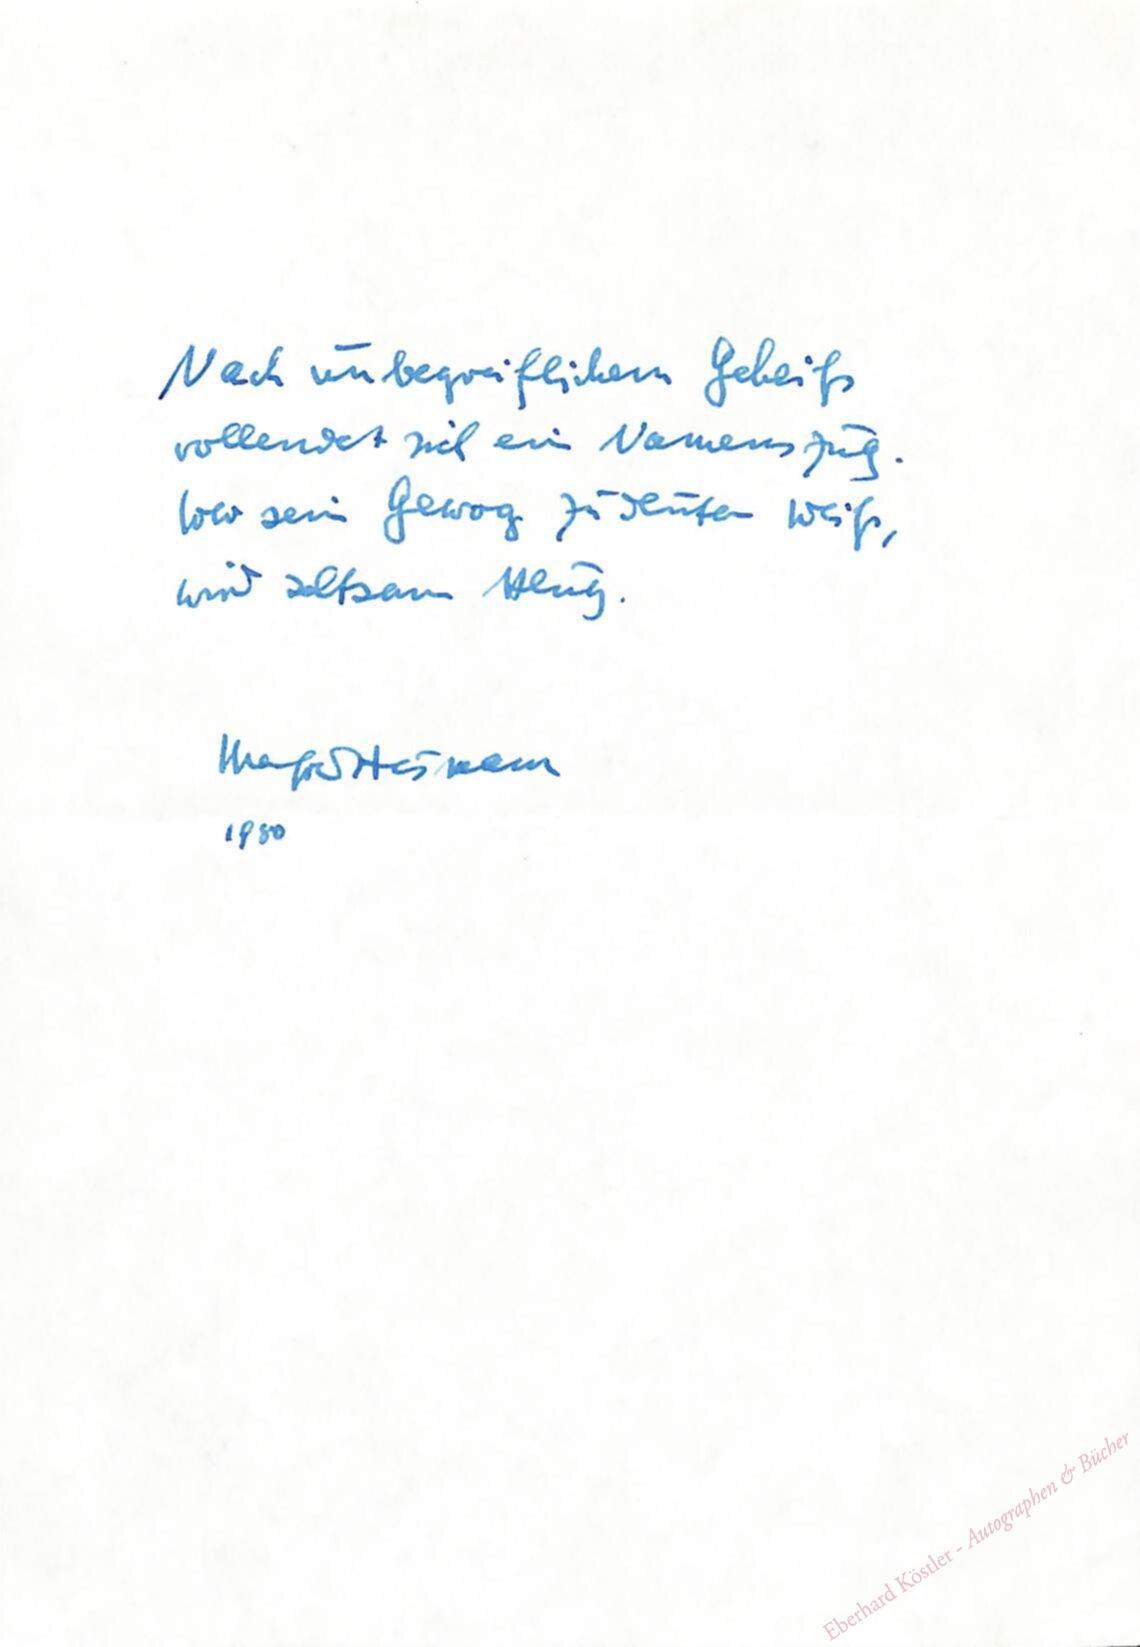 Nach unbegreiflichem Geheiß
vollendet sich ein Namenszug.
Wer sein Gewog zu deuten weiß,
wird seltsam klug.
Manfred Hausmann
1980
Eberhard Köstler - Autographen & Bücher